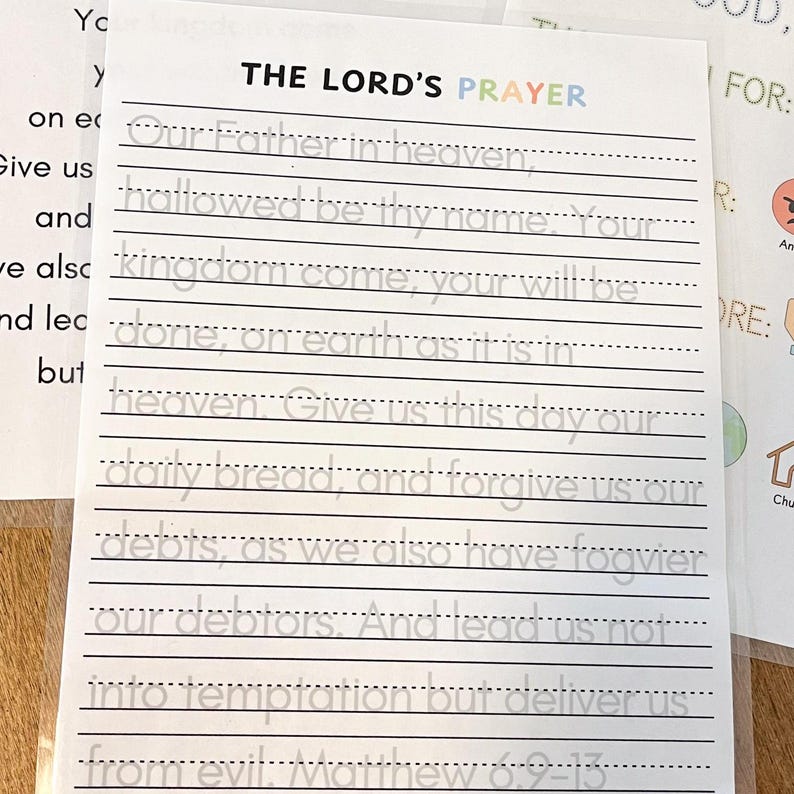 Your kingdom come
y
on ea
Give us
and
ve also
nd lead
but
THE LORD'S PRAYER
Our Father in heaven,
hallowed be thy name. Your
kingdom come, your will be
done, on earth as it is in
heaven. Give us this day our
daily bread, and forgive us our
debts, as we also have fogvier
our debtors. And lead us not
into temptation but deliver us
from evil. Matthew 6:9-13
OD,
FOR:
R:
An
ORE:
Chu